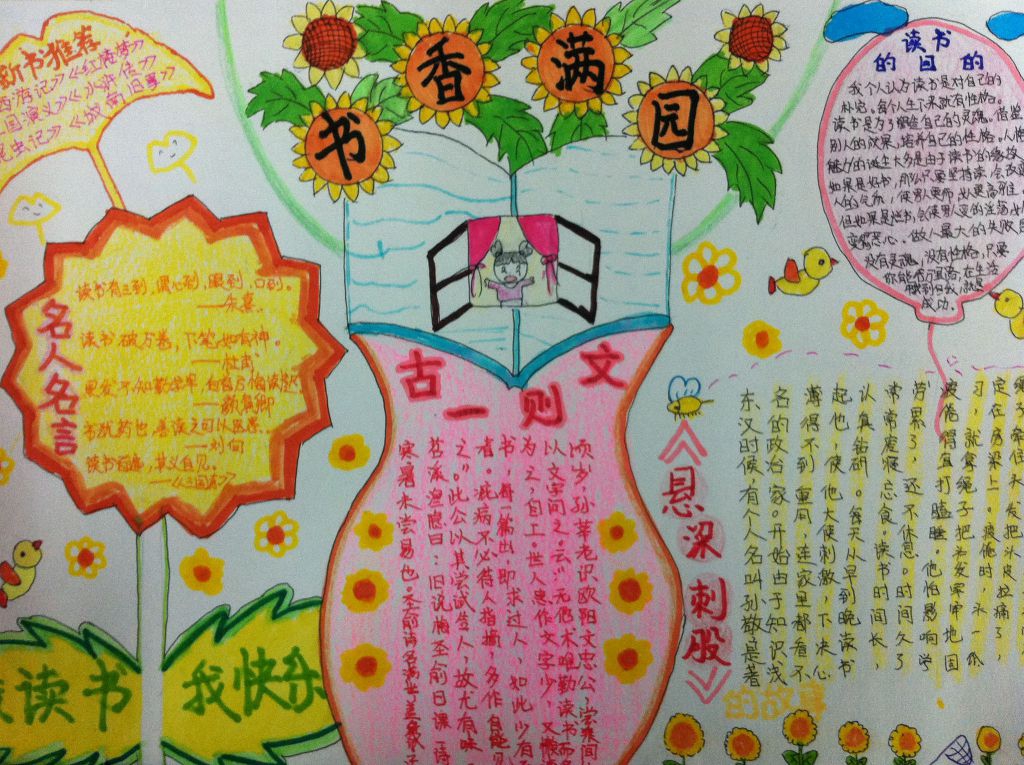 书香满园
新书推荐
《红楼梦》
《水浒传》
《城南旧事》
名人名言
读书有三到,谓心到,眼到,口到。
——朱熹
读书破万卷,下笔如有神。
——杜甫
黑发不知勤学早,白首方悔读书迟
——颜真卿
书犹药也,善读之可以医愚。
——刘向
读书百遍,其义自见。
——《三国志》
读书
我快乐
古文一则
顷岁,孙莘老识欧阳文忠公,尝乘间
以文字问之。云:"无他术,唯勤读书而多
为之,自工。世人患作文字少,又懒
书,每一篇出,即求过人,如此少有
者。疵病不必待人指摘,多作自能见
之。"此公以其学试告人,故尤有味
苕溪渔隐曰:旧说梅圣俞日课一诗
寒暑未尝易也。圣俞诗名满世,盖
读书
的目的
我个人认为读书是对自己的
补充。每个人生下来就有性格。
读书是为了塑造自己的灵魂。借鉴
别人的效果,培养自己的性格。人格
魅力的诞生大多是由于读书的缘故
如果是好书,那么只要坚持读,会改造
但如果是烂书,会使男人变的
变得恶心。做人最大的失败
没有灵魂,没有性格。只要
你能否宜店,在生活
中找到自我,就是
成功。
《悬梁刺股》
的故事
东汉时候,有个人名叫孙敬,是著
名的政治家。开始由于知识浅
薄得不到重用,连家里都看不
起他,使他大受刺激,下决心
认真钻研。每天从早到晚读书
常常废寝忘食。读书时间长,
劳累了,还不休息。时间久了
疲倦得直打瞌睡。他怕影响学
习,就拿绳子把头发牢牢地固
定在房梁上。疲倦时,头一低
绳子牵住头发把头皮拉痛了,